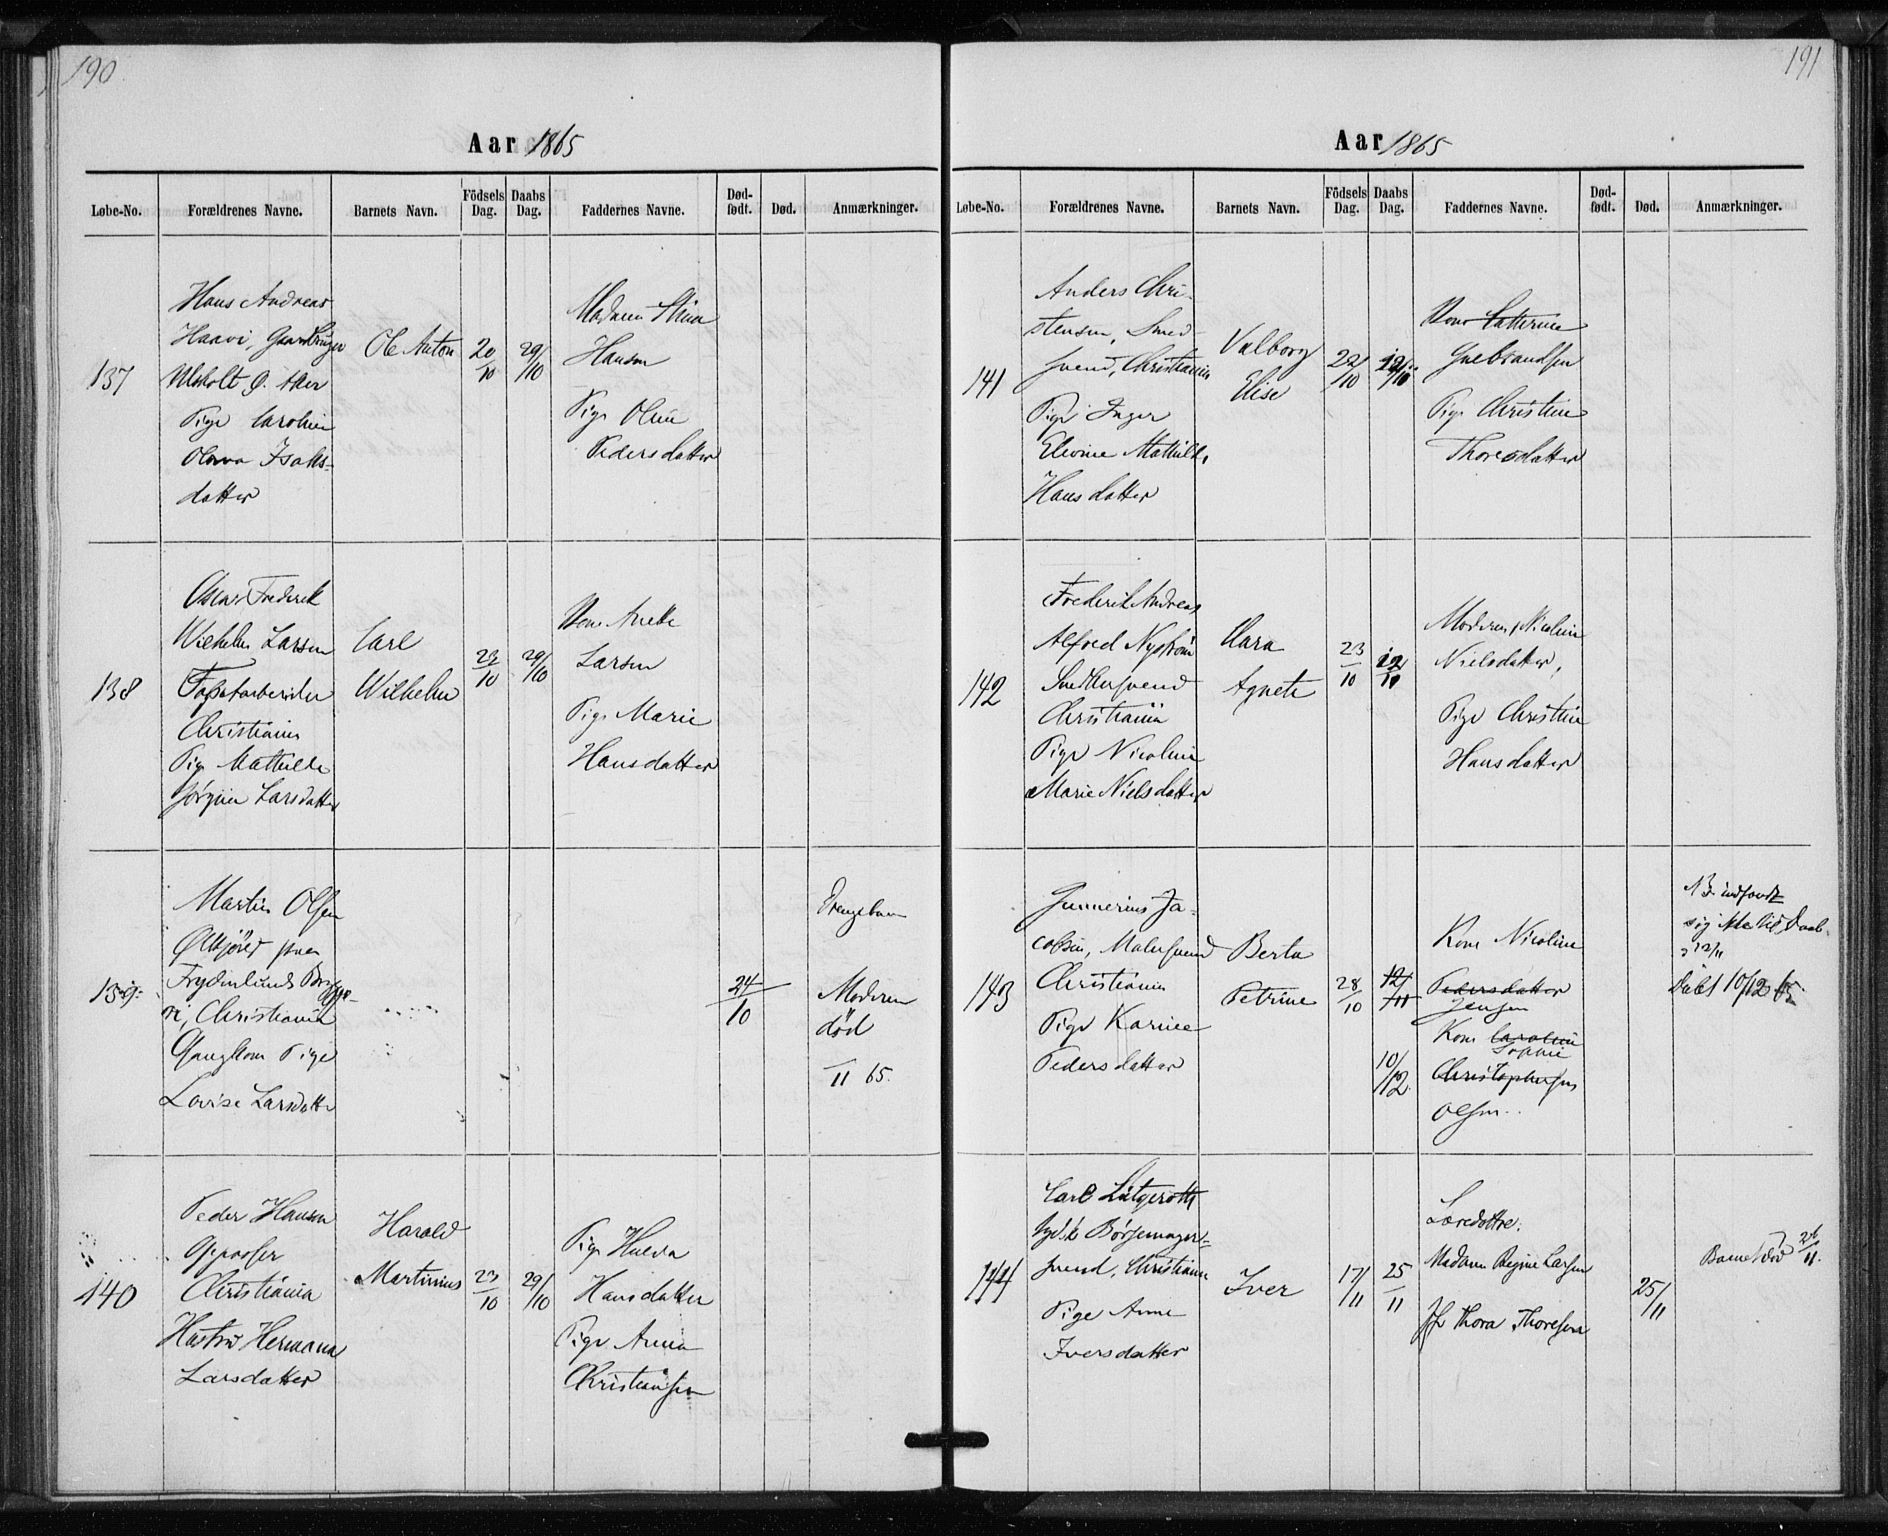 190
Aar 1865
Løbe-No. Forældrenes Navne. Barnets Navn. Födsels Dag. Daabs Dag. Faddernes Navne. Død-födt. Død. Anmærkninger.
137
Hans Andreas
Haavi,
Ulsholt Ø. Aker
Pige Caroline
Isaks-
datter
Ole Anton
20/10
29/10
Madam Stina
Hansen
Pige Oline
Pedersdatter
138
Oscar Frederik
Wilhelm Larsen
Christiania
Pige Mathilde
Jørgine Larsdatter
Carl
Wilhelm
23/10
29/10
Kone Anette
Larsen
Pige Marie
Hansdatter
139
Martin Olsen
Ølkjører paa
Frydenlunds Brygge-
ri, Christiania
Gangkone Pige
Lovise Larsdatter
24/10
Drengebarn
Moderen
død
11 65.
140
Peder Hansen
Christiania
Hustru Hermana
Larsdatter
Harald
Martinius
23/10
29/10
Pige Hulda
Hansdatter
Pige Anna
Christiansen
191
Aar 1865
Løbe-No. Forældrenes Navne. Barnets Navn. Födsels Dag. Daabs Dag. Faddernes Navne. Død-födt. Død. Anmærkninger.
141
Anders Chri-
stensen, Smed-
svend, Christiania
Pige Inger
Eleonie Mathilde
Hansdatter
Valborg
Elise
22/10
Kone Catherine
Gulbrandsen
Pige Christine
Thoresdatter
142
Frederik Andreas
Alfred Nyström
Christiania
Pige Nicoline
Marie Nielsdatter
Clara
Agnete
23/10
Moderen, Nicoline
Nielsdatter,
Pige Christine
Hansdatter
143
Gunnerius Ja-
cobsen, Malersvend
Christiania
Pige Karine
Pedersdatter
Berta
Petrine
28/10
12/11
10/12
Kone Nicoline
Pedersdatter
Jensen
Kone Caroline
Sophie
Christophersen
Olsen
NB. indfandt
sig ikke til Daab.
d 12/11
Døbt 10/12 65
144
Carl Lütgeroth
tydsk Børsemager-
svend, Christiania
Pige Anne
Iversdatter
Iver
17/11
25/11
Madam Regine Larsen
Jfr Thora Thoresen
25/11
Barnet død 26/11.